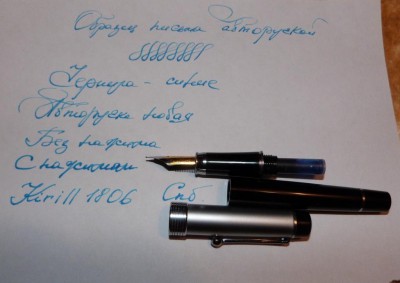 Образец письма авторучкой
Чернила - синие
Авторучка новая
Без нажима
С нажимом
Kirill 1806 Спб